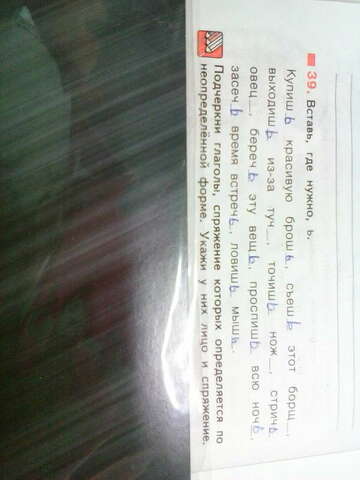 39. Вставь, где нужно, ь.
Купишь красивую брошь, съешь этот борщ_,
выходишь из-за туч_, точишь нож_, стричь
овец_, беречь эту вещь, проспишь всю ночь,
засечь время встречь, ловишь мышь.
Подчеркни глаголы, спряжение которых определяется по
неопределённой форме. Укажи у них лицо и спряжение.